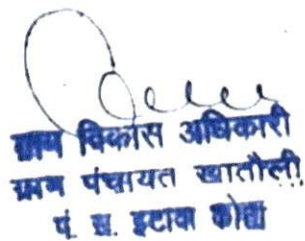 ग्राम विकास अधिकारी
ग्राम पंचायत खातौली
पं. स. इटावा कोटा